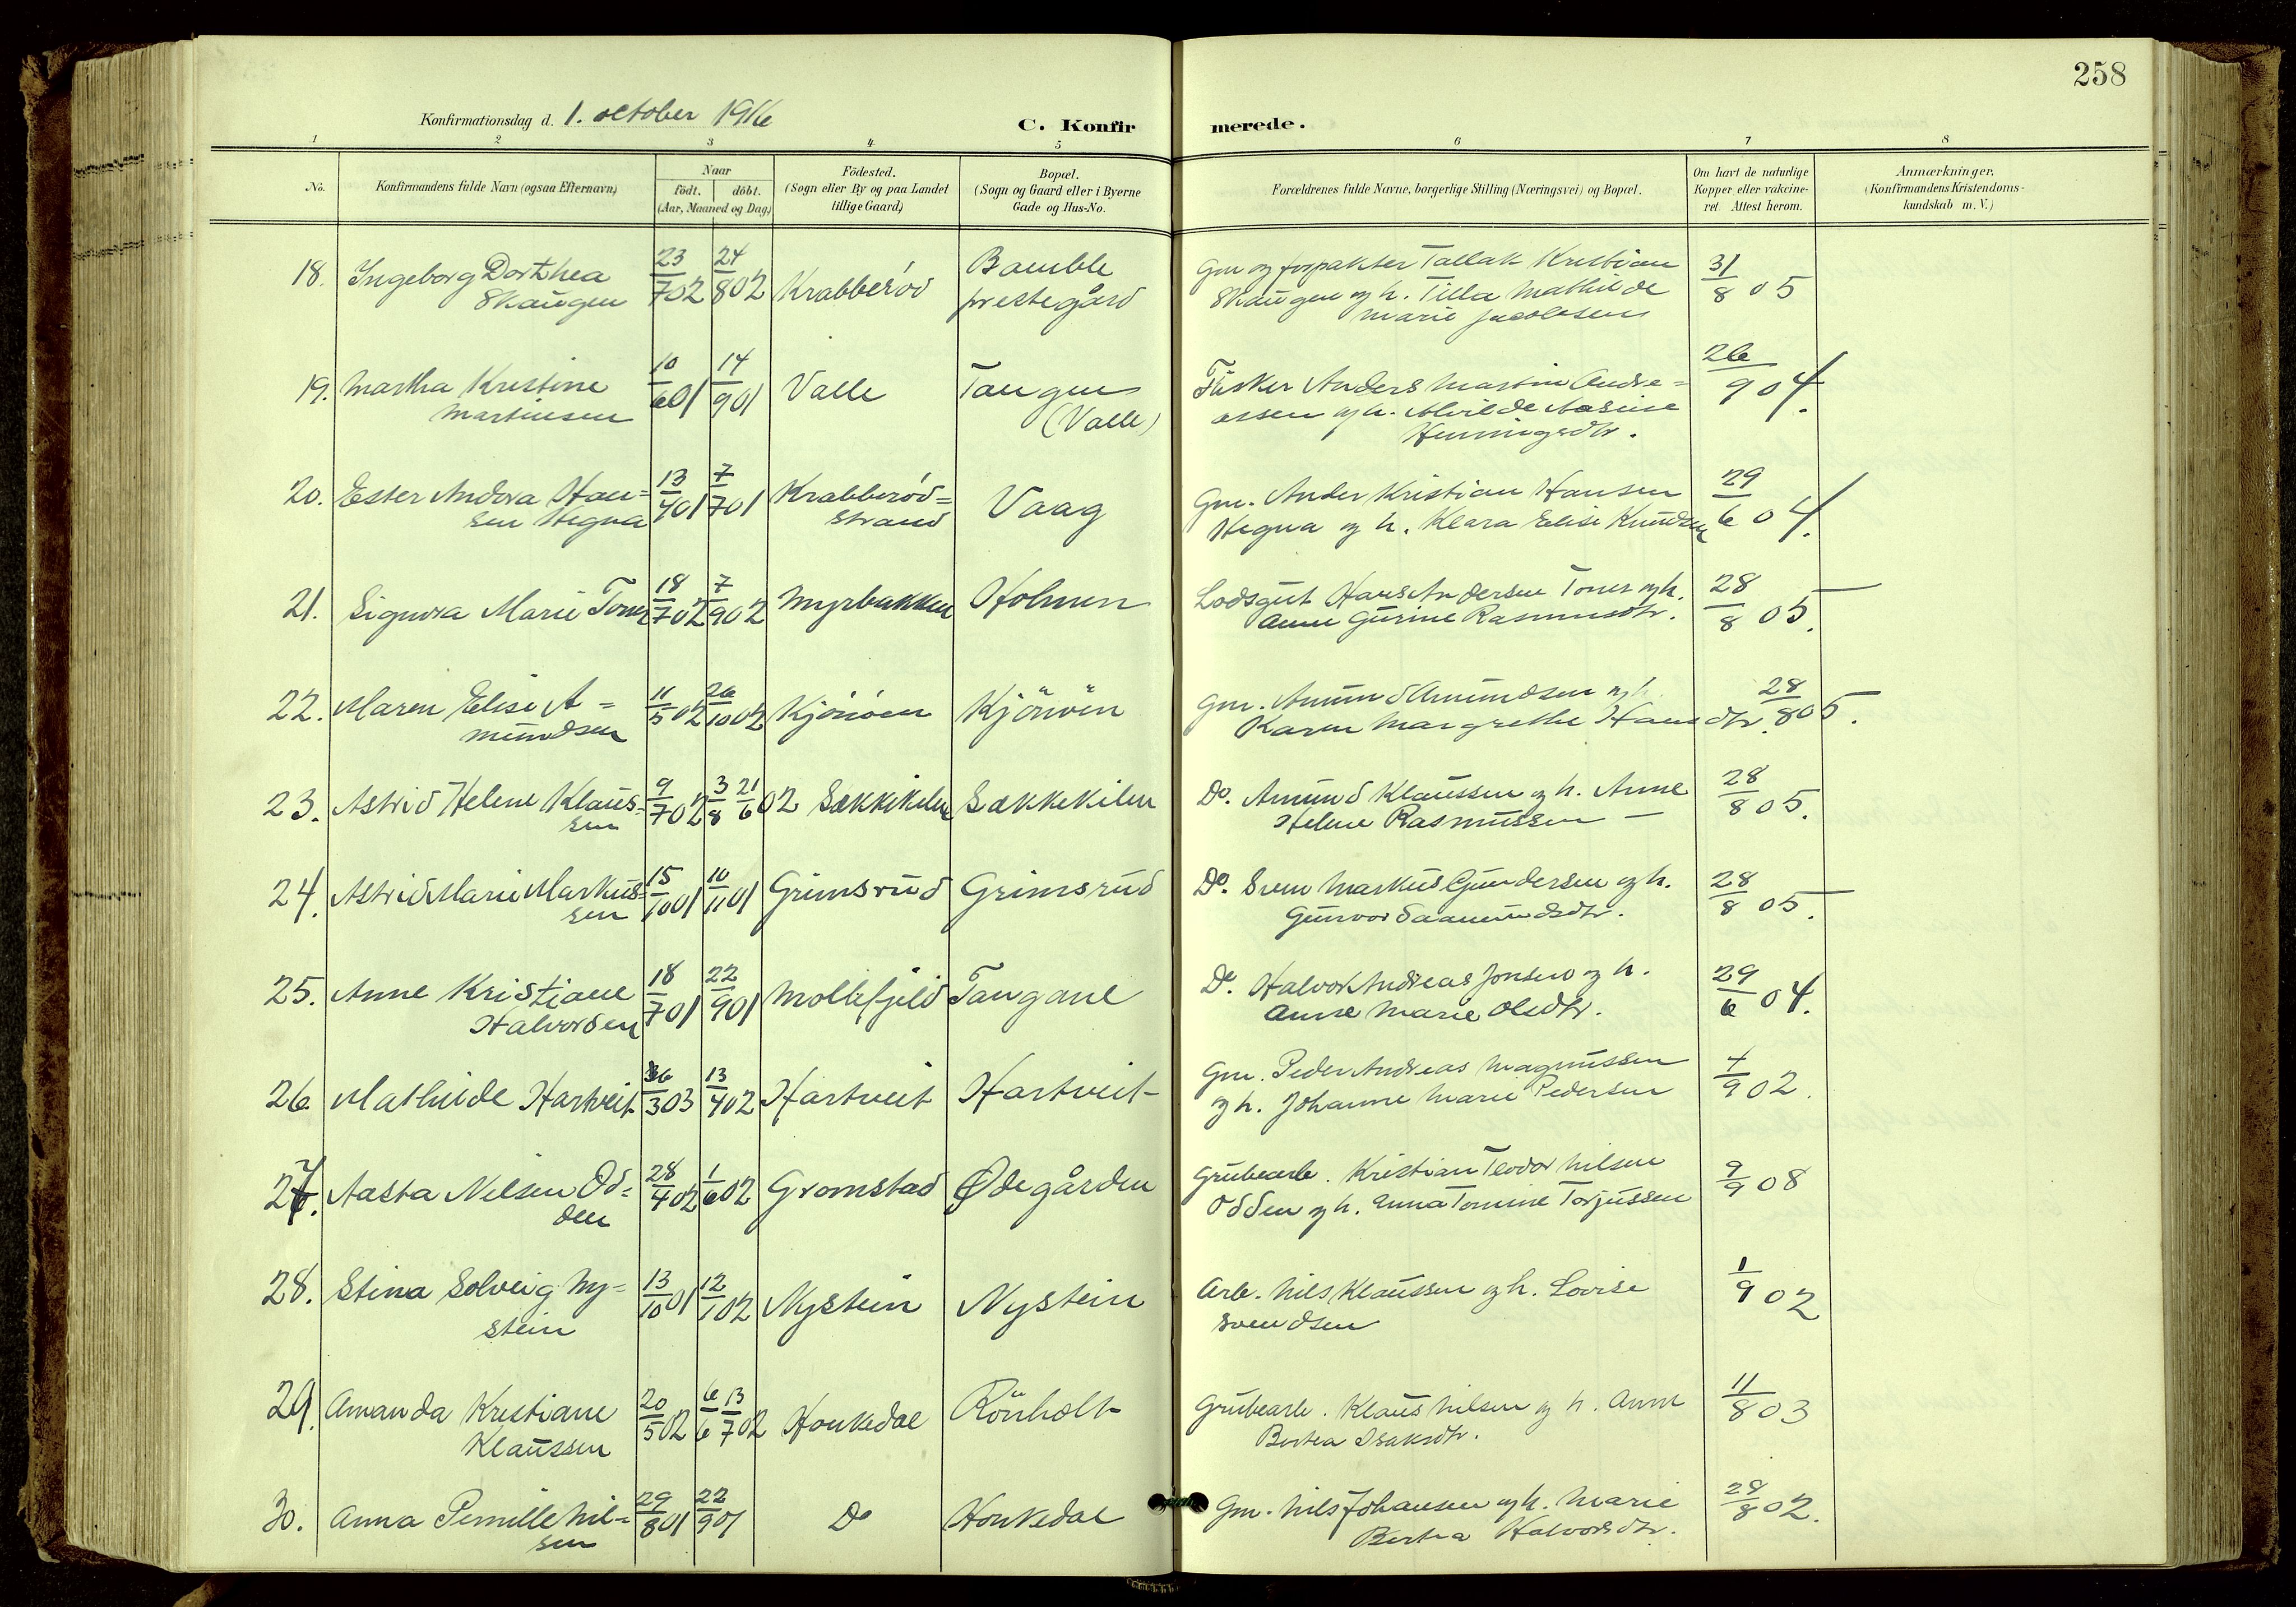 258
Konfirmationsdag d. 1. october 1916
C. Konfirmerede.
1 2 3 4 5 6 7 8
No.
Konfirmandens fulde Navn (ogsaa Efternavn)
Naar
födt. döbt.
(Aar, Maaned og Dag)
Födested.
(Sogn eller By og paa Landet
tillige Gaard)
Bopæl.
(Sogn og Gaard eller i Byerne
Gade og Hus-No.
Forældrenes fulde Navne, borgerlige Stilling (Næringsvei) og Bopæl.
Om havt de naturlige
Kopper eller vakcine-
ret. Attest herom.
Anmærkninger.
(Konfirmandens Kristendoms-
kundskab m. V.)
18. Ingeborg Dorthea 23/7 02 24/8 02 Krabberöd Bamble Gm og forpakter Tallak Kristian 31/8 05
Skaugen prestegård Skaugen og h. Tilla Mathilde
Marie Jacobsen
19. Martha Kristine 10/6 01 14/9 01 Valle Tangen Fisker Anders Martin Andre= 26/9 04.
Martinsen (Valle) assen og h. Alvilde Aasine
Henningsdtr.
20. Ester Andora Han= 13/4 01 7/7 01 Krabberöd= Vaag Gm. Ander Kristian Hansen 29/6 04.
sen Hegna strand Hegna og h. Klara Elise Knudsen
21. Signora Marie Toner 18/7 02 7/9 02 Myrbakken Holmen Lodsgut Hans Andersen Toner og h. 28/8 05.
Anne Gurine Rasmusdtr.
22. Maren Elise A= 11/5 02 26/10 02 Kjönöen Kjönöen Gm. Amund Amundsen og h. 28/8 05.
mundsen Karen Margrethe Hansdtr.
23. Astrid Helene Klaus= 9/7 02 3/8 21/6 02 Sækkekilen Sækkekilen Do. Amund Klaussen og h. Anne 28/8 05.
sen Helene Rasmussen —
24. Astrid Marie Markus= 15/10 01 10/11 01 Grimsrud Grimsrud Do. Sven Markus Gundersen og h. 28/8 05.
sen Gunvor Saamundsdtr.
25. Anne Kristiane 18/7 01 22/9 01 Mollefjeld Tangane Do. Halvor Andreas Jonsen og h. 29/6 04.
Halvorsen Anne Marie Olsdtr.
26. Mathilde Hartveit 3 03 13/4 02 Hartveit Hartveit Gm. Peder Andreas Magnussen 4/9 02.
og h. Johanne Marie Pedersen
27. Aasta Nilsen Od= 28/4 02 1/6 02 Gromstad Ødegården Grubearb. Kristian Teodor Nilsen 9/9 08
den Odden og h. Anna Tomine Torjussen
28. Stina Solveig Ny= 13/10 01 12/1 02 Nystein Nystein Arb. Nils Klaussen og h. Lovise 1/9 02
stein Svendsen
29. Amanda Kristiane 20/5 02 6/6 13/7 02 Honkedal Rönholt Grubearb. Klaus Nilsen og h. Anne 11/8 03
Klaussen Bertea Isaksdtr.
30. Anna Pernille Nil= 29/8 01 22/9 01 Do Honkedal Gm. Nils Johansen og h. Marie 28/8 02.
sen Bertea Halvorsdtr.